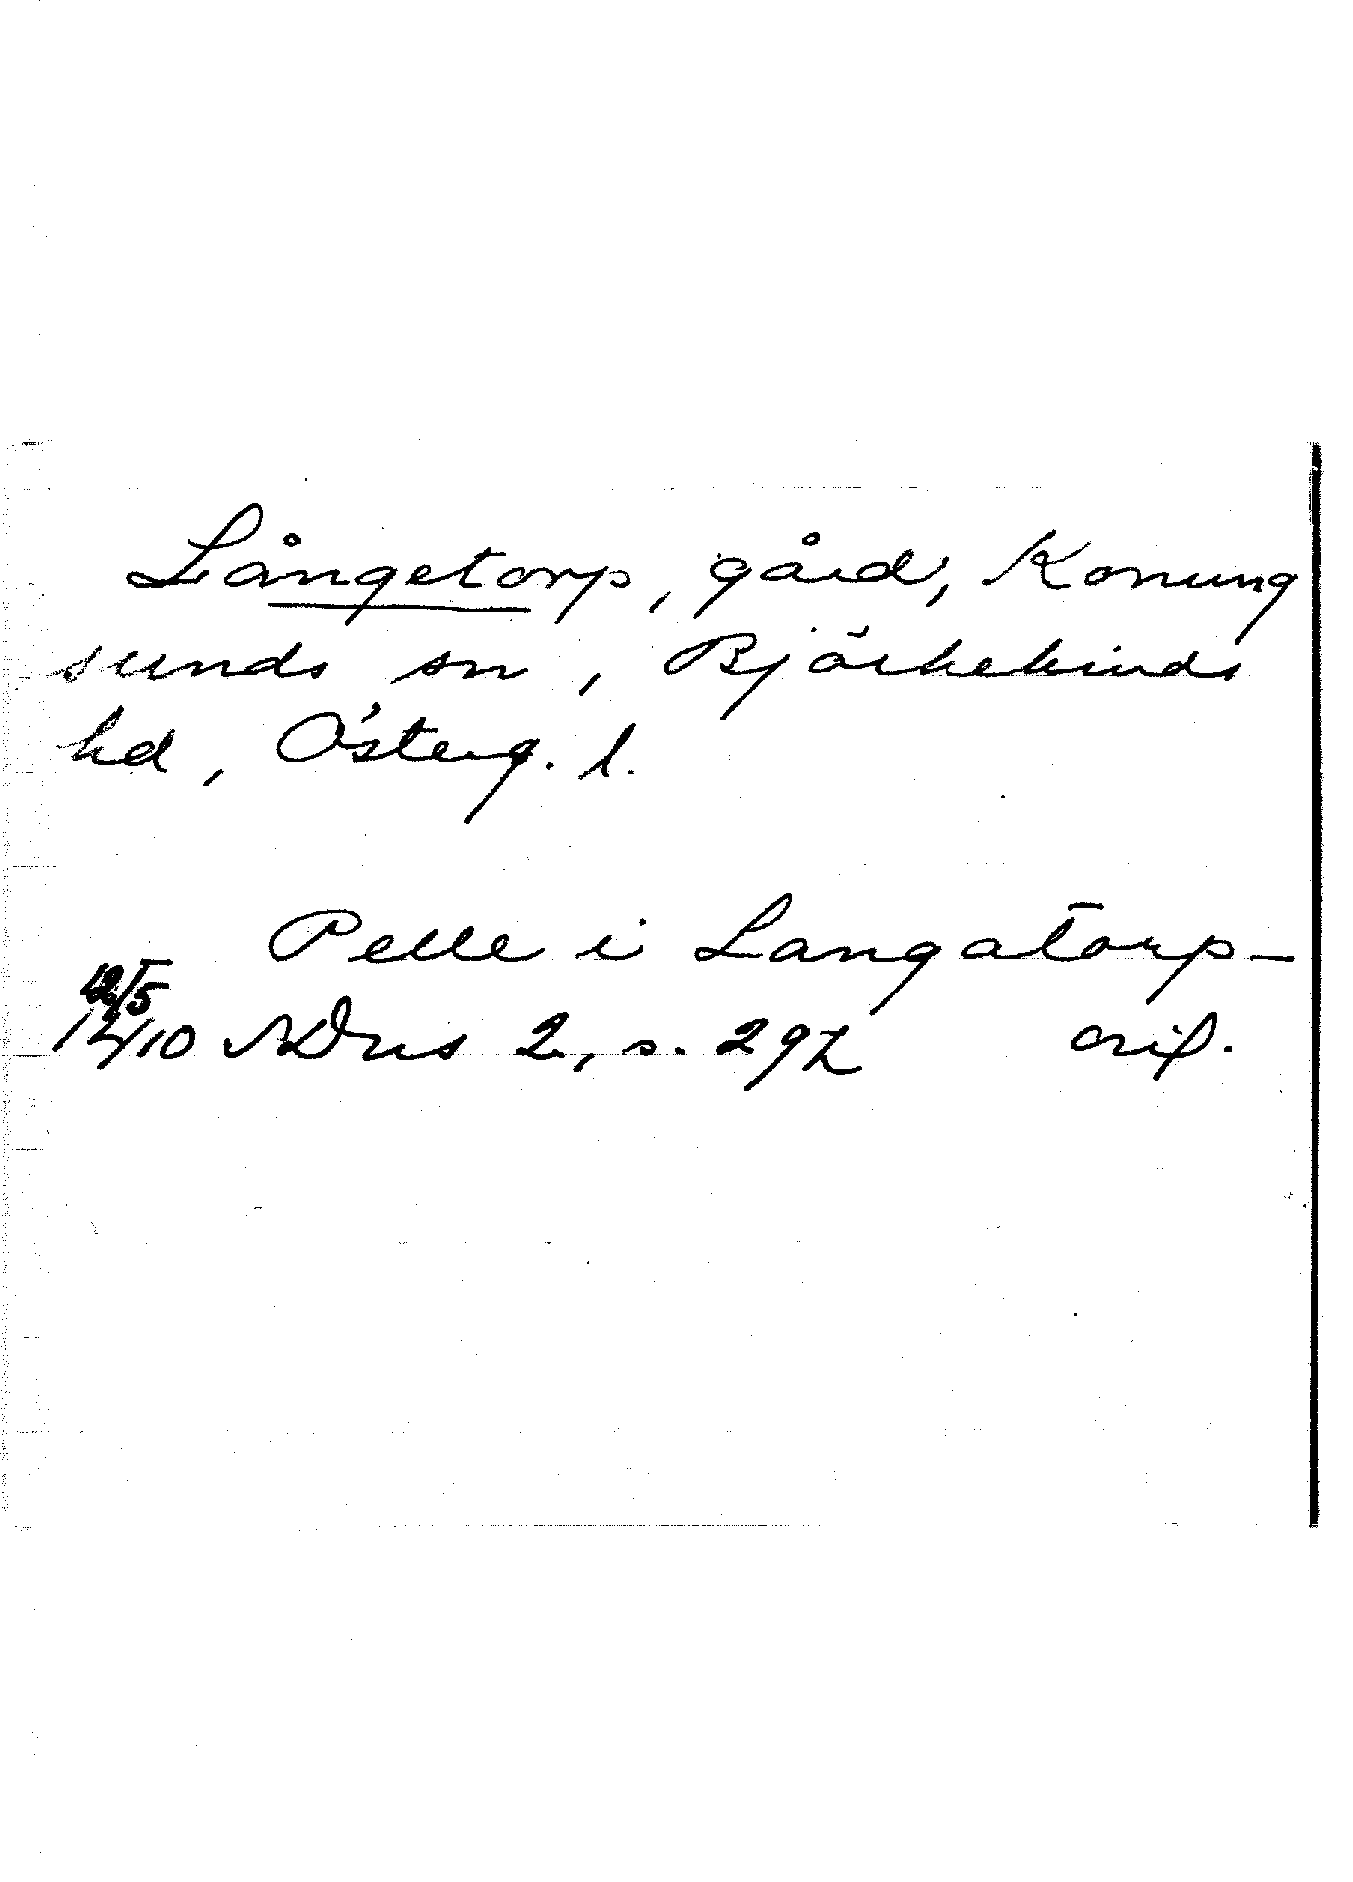 Långetorp, gård, Konung
sunds sn, Björkekinds
hd, Österg. l.
Pelle i Langatorp –
12/5
1410 SDns 2, s. 297 orig.